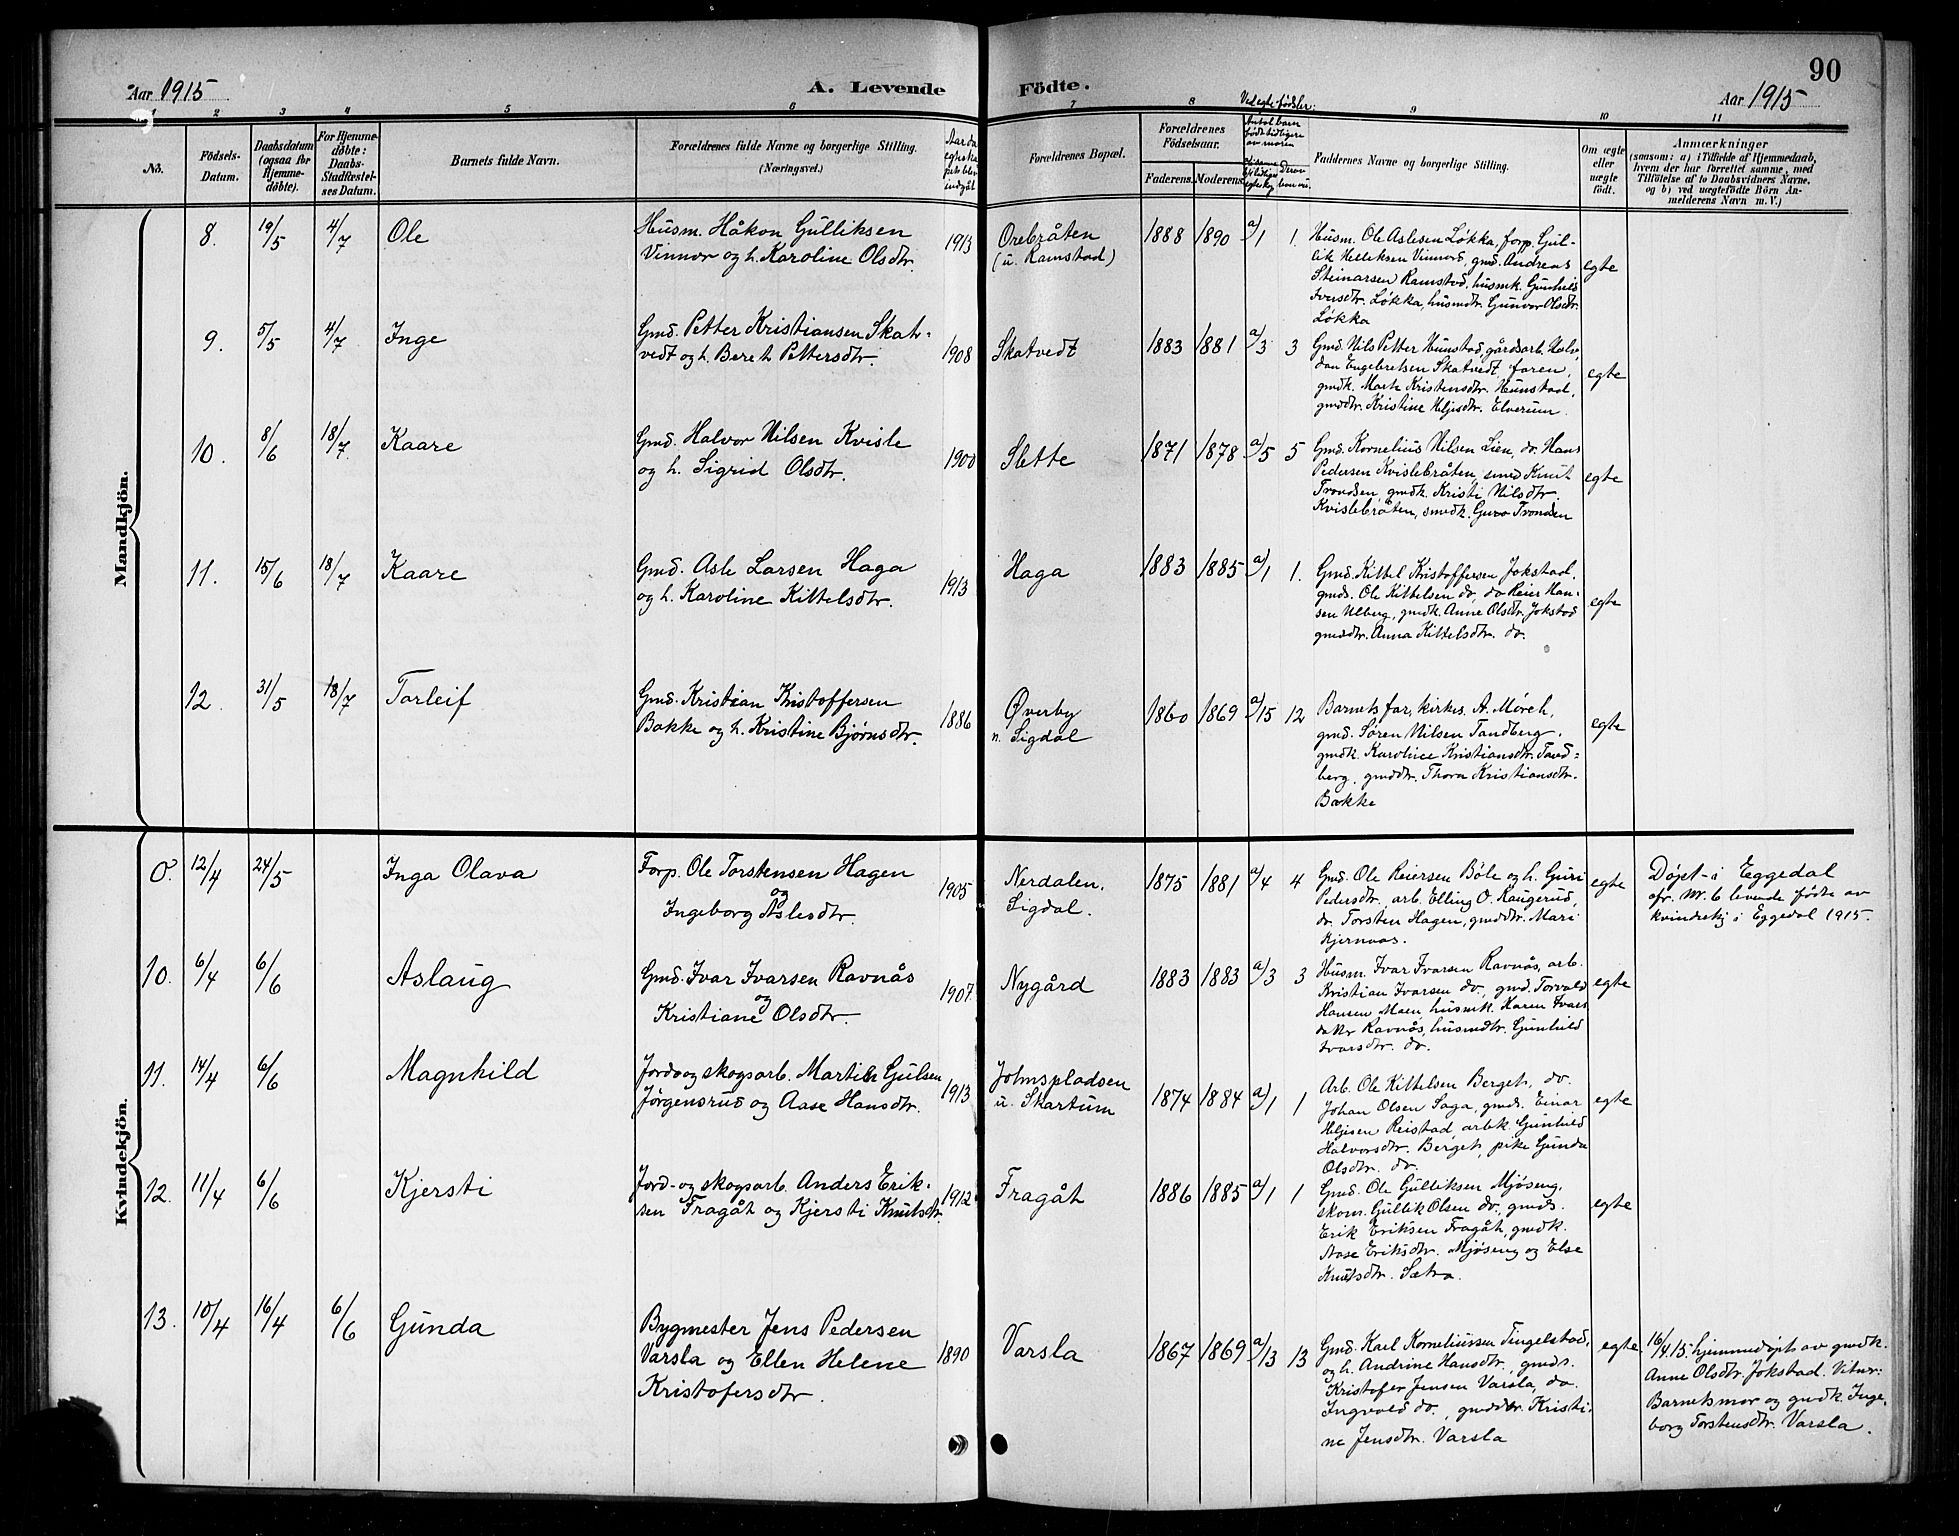 90
Aar 1915
A. Levende Födte.
Aar 1915
1 2 3 4 5 6 7 8 9 10 11
Ved egte fødsler:
No.
Födsels-
Datum.
Daabsdatum
(ogsaa for
Hjemme-
döbte).
For Hjemme-
döbte:
Daabs-
Stadfæstel-
ses Datum.
Barnets fulde Navn.
Forældrenes fulde Navne og borgerlige Stilling.
(Næringsvei.)
Forældrenes Bopæl.
Forældrenes
Födselsaar.
Faderens. Moderens.
Antal barn
født tidligere
av moren
Faddernes Navne og borgerlige Stilling.
Om ægte
eller
uægte
födt.
Anmærkninger
(saasom: a) i Tilfælde af Hjemmedaab,
hvem der har forrettet samme, med
Tilföielse af to Daabsvidners Navne,
og b) ved uægtefödte Börn An-
melderens Navn m. V.)
Mandkjön.
8. 19/5 4/7 Ole
Husm. Håkon Gulliksen
Vinnor og h. Karoline Olsdtr.
1913
Orebråten
(u. Ramstad)
1888 1890 a/1 1.
Husm. Ole Aslesen Løkka, forp. Gul-
lik Helliksen Vinnord, gmd. Andreas
Steinarsen Ramstad, husmk. Gunhild
Iversdtr. Løkka, husmdtr. Gunvor Olsdtr.
Løkka
egte
9. 5/5 4/7 Inge
Gmd. Petter Kristiansen Skat-
vedt og h. Beret Pettersdtr.
1908
Skatvedt
1883 1881 a/3 3
Gmd. Nils Petter Hunstad, gårdsarb. Halv-
dan Engebretsen Skatvedt, faren,
gmdk. Marte Kristensdtr. Hunstad,
gmddtr. Kristine Heljesdtr. Elverum.
egte
10. 8/6 18/7. Kaare
Gmd. Halvor Nilsen Kvisle
og h. Sigrid Olsdtr.
1900
Slette
1871 1878 a/5 5
Gmd. Kornelius Nilsen Lien, do. Hans
Pedersen Kvislebråten, smed Knut
Trondsen, gmdk. Kristi Nilsdtr.
Kvislebråten, smedk. Guro Trondsen
egte
11. 15/6 18/7 Kaare
Gmd. Asle Larsen Haga
og h. Karoline Kittelsdtr.
1913
Haga
1883 1885 a/1 1.
Gmd. Kittel Kristoffersen Jokstad,
gmds. Ole Kittelsen do, do Reier Han-
sen Ulberg, gmdk. Anne Olsdtr. Jokstad
gmddtr. Anna Kittelsdtr. do.
egte
12. 31/5 18/7 Torleif
Gmd. Kristian Kristoffersen
Bakke og h. Kristine Bjørnsdtr.
1886
Øverby
n. Sigdal
1860 1869 a/15 12
Barnets far, kirkes. A. Mörch,
gmd. Søren Nilsen Tandberg,
gmdk. Karolince Kristiansdtr. Tand-
berg, gmddtr. Thora Kristiansdtr.
Bakke
egte
Kvindekjön.
0. 12/4 24/5 Inga Olava
Forp. Ole Torstensen Hagen
og
Ingeborg Aslesdtr.
1905
Nerdalen,
Sigdal.
1875 1881 a/4 4
Gmd. Ole Reiersen Böle og h. Guri
Pedersdtr. arb. Elling O. Kaugerud,
do. Torsten Hagen, gmddtr. Mari
Kjernaas.
egte
Døpt i Eggedal
cfr. Nr. 6 levende fødte av
kvindekj i Eggedal 1915.
10. 6/4 6/6 Aslaug
Gmd. Ivar Ivarsen Ravnås
og
Kristiane Olsdtr.
1907.
Nygård
1883 1883 a/3 3
Husm. Ivar Ivarsen Ravnås, arb.
Kristian Ivarsen do, gmd. Torvald
Hansen Moen, husmk. Karen Ivars
datter Ravnås, husmdtr. Gunhild
Ivarsdtr. do.
egte
11. 14/4 6/6 Magnhild
Jord og skogsarb. Martin Gulsen
Jørgensrud og Aase Hansdtr.
1913
Johnspladsen
u. Skartum
1874 1884 a/1 1
Arb. Ole Kittelsen Berget, do.
Johan Olsen Saga, gmds. Einar
Heljesen Reistad arbk. Gunhild
Halvorsdtr. Berget, pike Gunda
Olsdtr. do.
egte
12. 11/4 6/6 Kjersti
Jord- og skogsarb. Anders Erik-
sen Fragåt og Kjersti Knutsdtr.
1912
Fragåt
1886 1885 a/1 1
Gmd. Ole Gulliksen Mjøseng,
skom. Gullik Olsen do, gmds.
Erik Eriksen Fragåt, gmdk.
Aase Eriksdtr. Mjøseng og Else
Knutsdtr. Sætra.
egte
13. 10/4 16/4 6/6 Gunda
Bygmester Jens Pedersen
Varsla og Ellen Helene
Kristofersdtr.
1890
Varsla
1867 1869 a/13 13
Gmd. Karl Korneliussen Tingelstad,
og h. Andrine Hansdtr, gmds.
Kristofer Jensen Varsla, do.
Ingvald do., gmddtr. Kristi-
ne Jensdtr. Varsla
egte
16/4 15. hjemmedøpt av gmdk.
Anne Olsdtr. Jokstad. Vitner:
Barnets mor og gmdk. Inge-
borg Torstensdtr. Varsla.